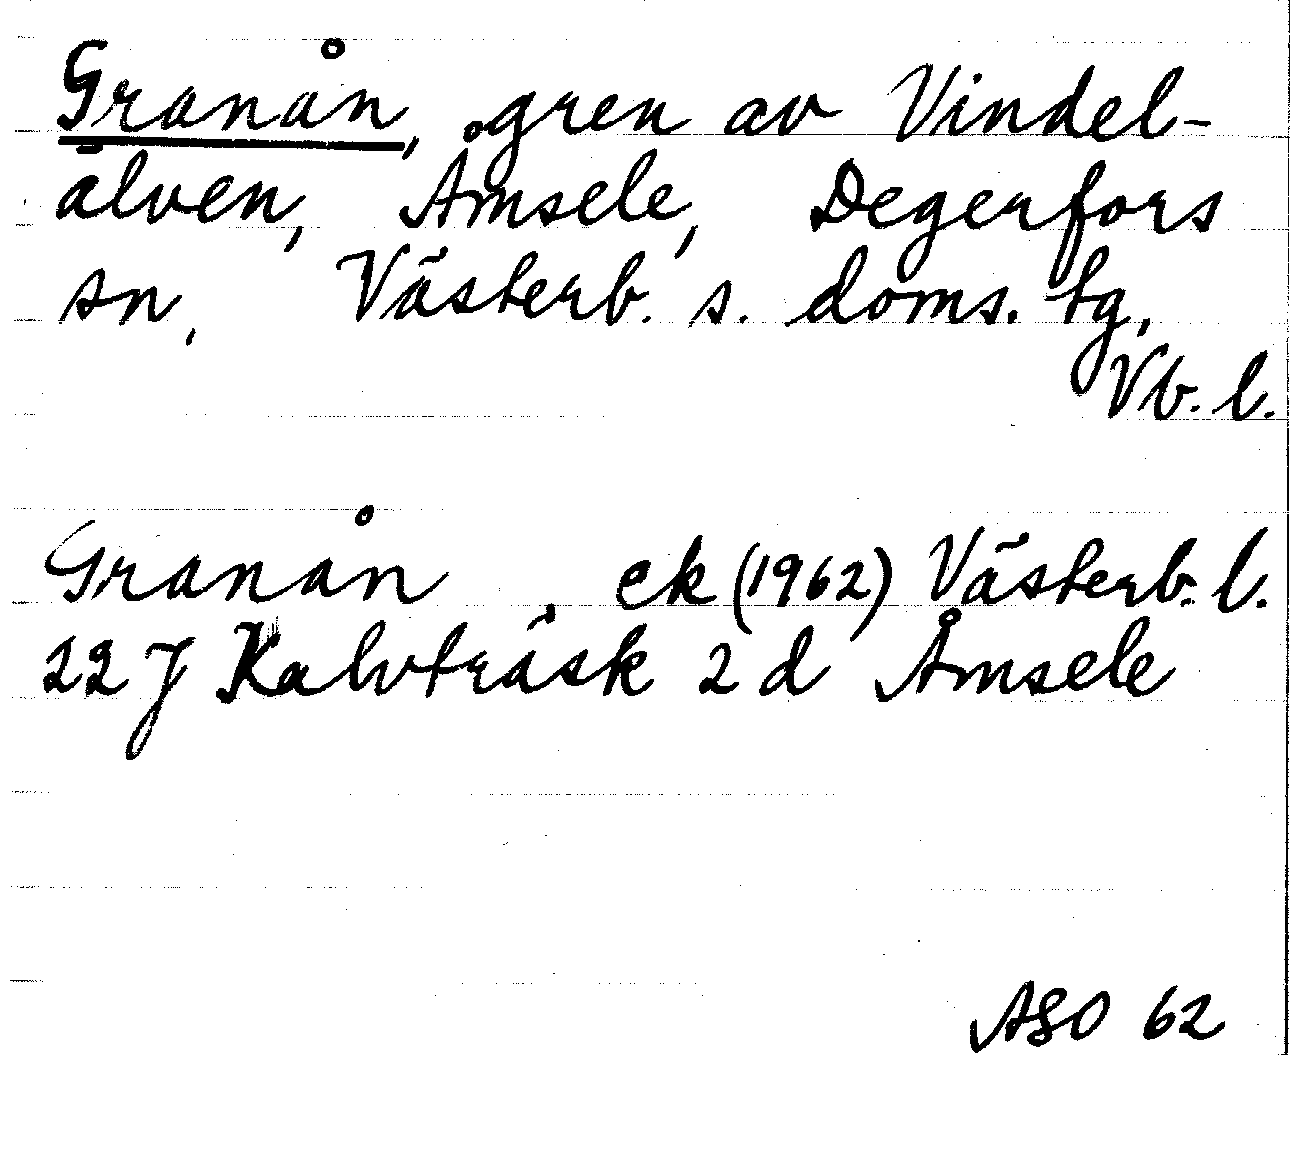 Granån, gren av Vindel-
älven, Åmsele, Degerfors
sn, Västerb. s. doms. tg,
Vb. l.
Granån, ek (1962) Västerb. l.
22 J Kalvträsk 2 d Åmsele
ASO 62